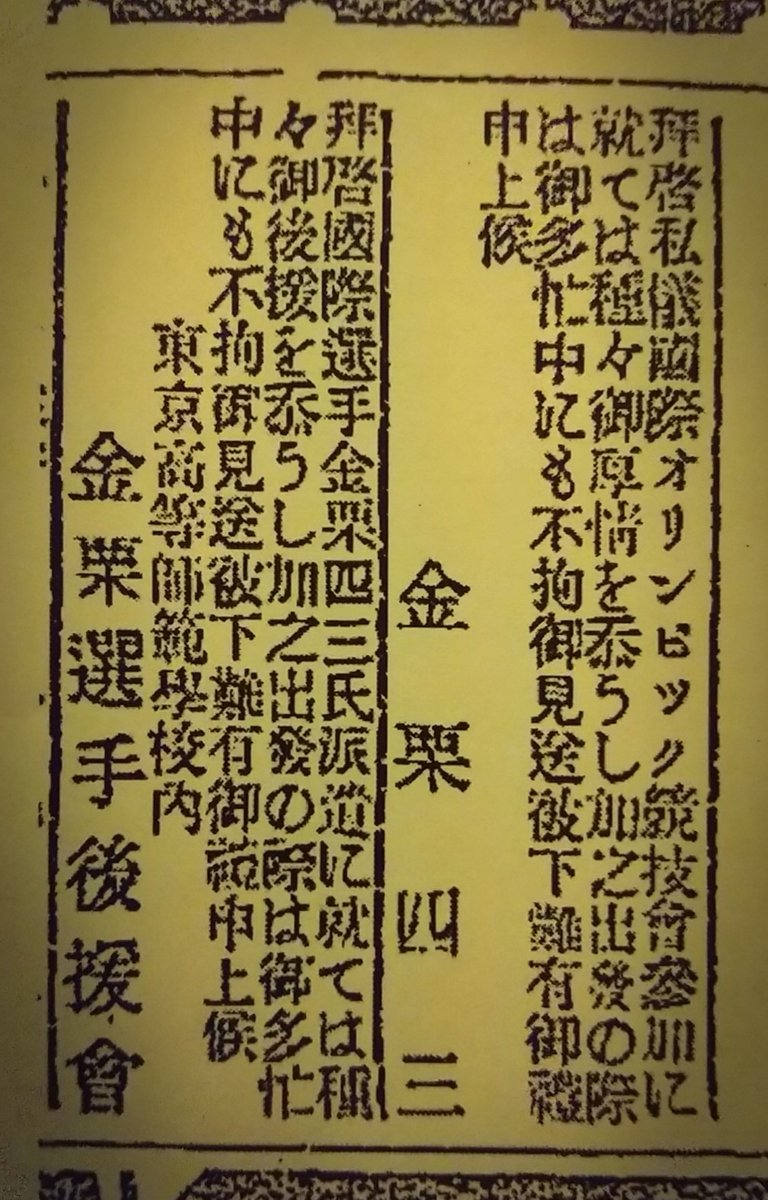 拜啓私儀國際オリンピック競技會參加に
就ては種々御厚情を忝うし加之出發の際
は御多忙中にも不拘御見送被下難有御禮
申上候
金栗四三
拜啓國際選手金栗四三氏派遣に就ては種
々御後援を忝うし加之出發の際は御多忙
中にも不拘御見送被下難有御禮申上候
東京高等師範學校内
金栗選手後援會